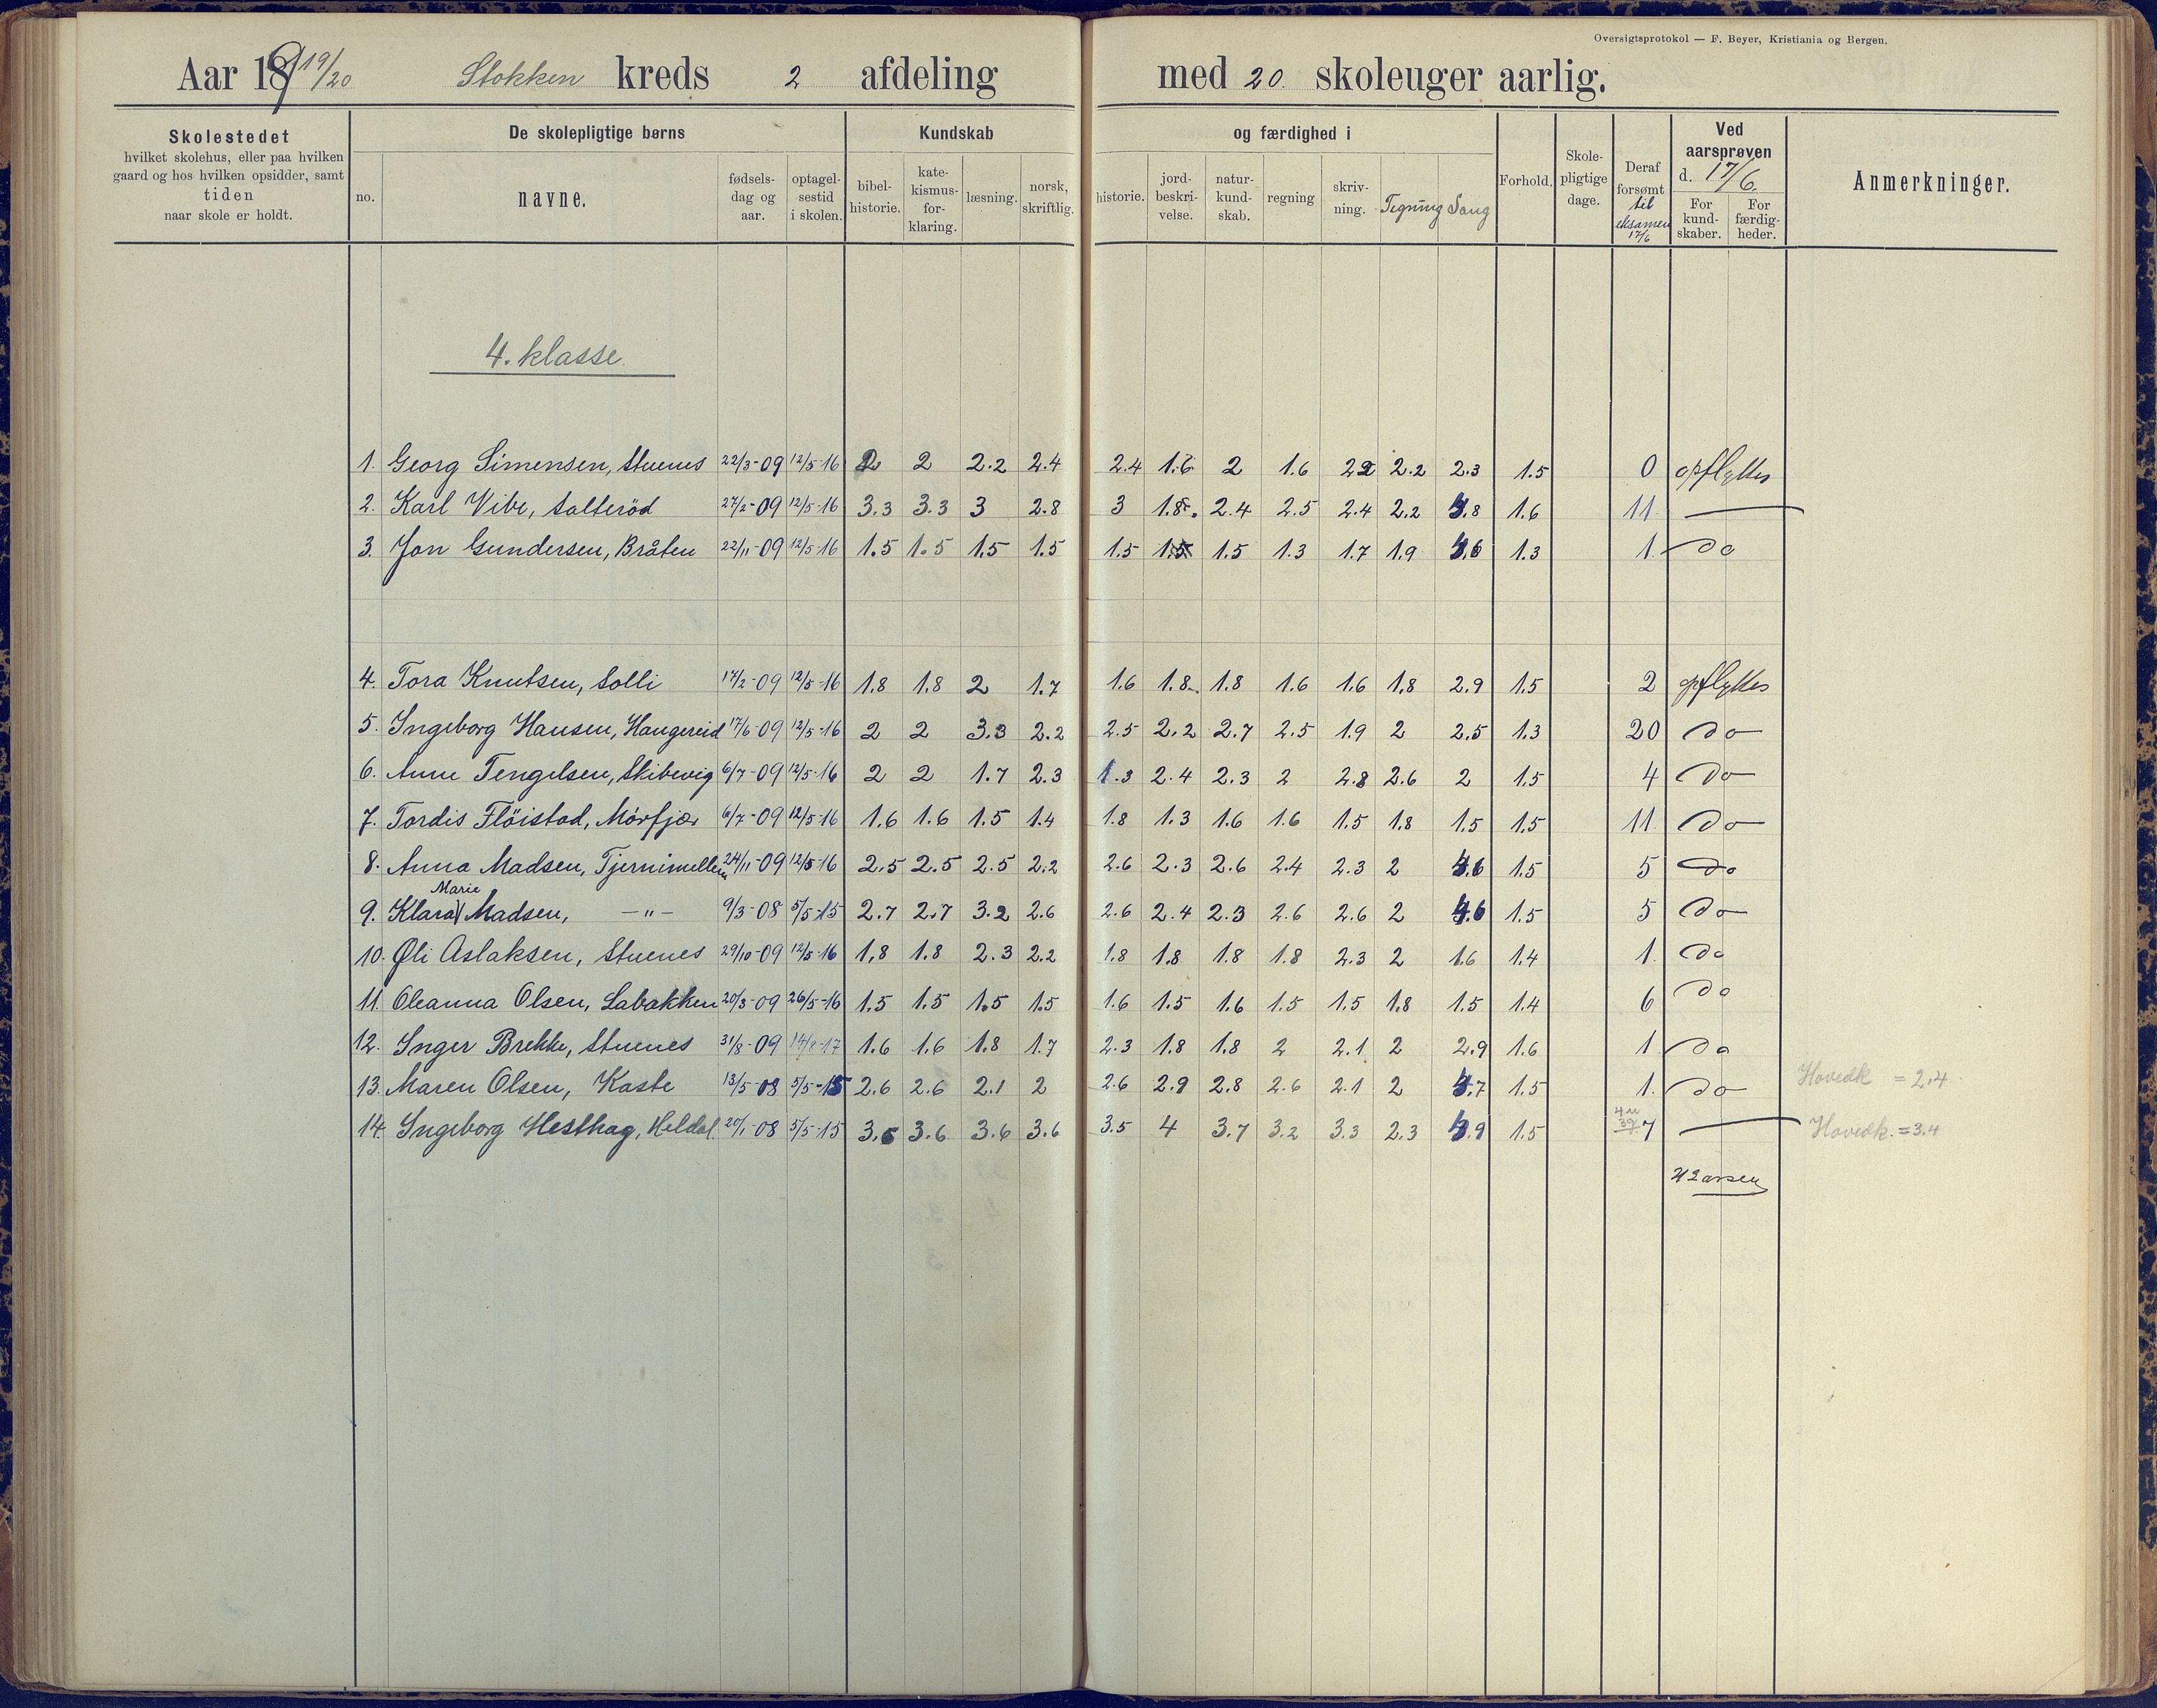 Oversigtsprotokol — F. Beyer, Kristiania og Bergen.
Aar 1919/20 Stokken kreds 2 afdeling med 20 skoleuger aarlig.
Skolestedet
hvilket skolehus, eller paa hvilken
gaard og hos hvilken opsidder, samt
tiden
naar skole er holdt.
De skolepligtige børns
no.
navne.
fødsels-
dag og
aar.
optagel-
sestid
i skolen.
Kundskab
bibel-
historie.
kate-
kismus-
for-
klaring.
læsning.
norsk,
skriftlig.
og færdighed i
historie.
jord-
beskri-
velse.
natur-
kund-
skab.
regning
skriv-
ning.
Tegning
Sang
Forhold.
Skole-
pligtige
dage.
Deraf
forsømt
til
eksamen
17/6
Ved
aarsprøven
d. 17/6.
For
kund-
skaber.
For
færdig-
heder.
Anmerkninger.
4. klasse.
1. Georg Simensen, Stuenes 22/3-09 12/5-16 2 2 2.2 2.4 2.4 1.6 2 1.6 2.2 2.2 2.3 1.5 0 opflyttes
2. Karl Vibe, Salterød 27/2-09 12/5-16 3.3 3.3 3 2.8 3 1.8 2.4 2.5 2.4 2.2 3.8 1.6 11 —
3. Jon Gundersen, Bråten 22/11-09 12/5-16 1.5 1.5 1.5 1.5 1.5 1.5 1.5 1.3 1.7 1.9 3.6 1.3 1. do
4. Tora Knutsen, Solli 17/2-09 12/5-16 1.8 1.8 2 1.7 1.6 1.8 1.8 1.6 1.6 1.8 2.9 1.5 2 opflyttes
5. Ingeborg Hansen, Haugereid 17/6-09 12/5-16 2 2 3.3 2.2 2.5 2.2 2.7 2.5 1.9 2 2.5 1.3 20 do
6. Anne Tengelsen, Skibevig 6/7-09 12/5-16 2 2 1.7 2.3 1.3 2.4 2.3 2 2.8 2.6 2 1.5 4 do
7. Tordis Flöistad, Mörfjær 6/7-09 12/5-16 1.6 1.6 1.5 1.4 1.8 1.3 1.6 1.6 1.5 1.8 1.5 1.5 11 do
8. Anna Madsen, 24/11-09 12/5-16 2.5 2.5 2.5 2.2 2.6 2.3 2.6 2.4 2.3 2 3.6 1.5 5 do
9. Klara Marie Madsen, —„— 9/3-08 5/5-15 2.7 2.7 3.2 2.6 2.6 2.4 2.3 2.6 2.6 2 4.6 1.5 5 do
10. Øli Aslaksen, Stuenes 29/10-09 12/5-16 1.8 1.8 2.3 2.2 1.8 1.8 1.8 1.8 2.3 2 1.6 1.4 1. do
11. Oleanna Olsen, Labakken 20/3-09 26/5-16 1.5 1.5 1.5 1.5 1.6 1.5 1.6 1.5 1.5 1.8 1.5 1.4 6 do
12. Inger Brekke, Stuenes 31/8-09 14/8-17 1.6 1.6 1.8 1.7 2.3 1.8 1.8 2 2.1 2 2.9 1.6 1 do
13. Maren Olsen, Kaste 13/5-08 5/5-15 2.6 2.6 2.1 2 2.6 2.9 2.8 2.6 2.1 2 3.7 1.5 1. do Hovedk = 2.4
14. Ingeborg Hesthag, Heldal 20/1-08 5/5-15 3.5 3.6 3.6 3.6 3.5 4 3.7 3.2 3.3 2.3 3.9 1.5 7 — Hovedk. = 3.4
Larsen